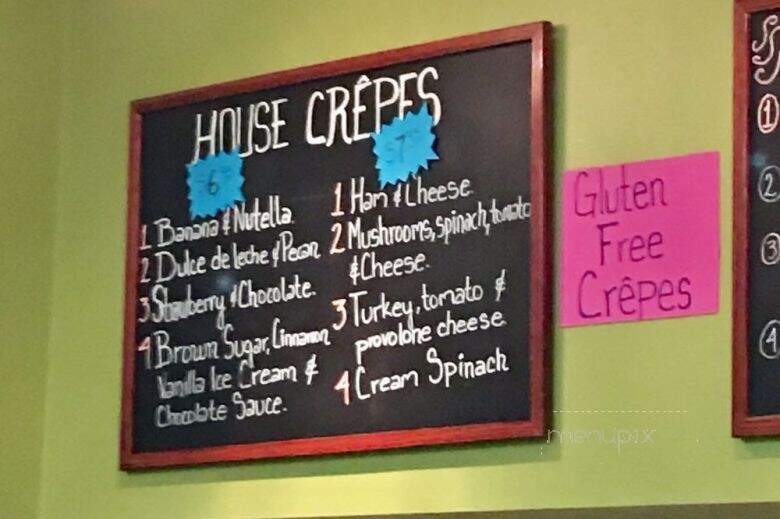 HOUSE CRÊPES
6
1 Banana & Nutella
2 Dulce de leche & Pecan
3 Strawberry & Chocolate.
4 Brown Sugar, Cinnamon
Vanilla Ice Cream &
Chocolate Sauce.
7
1 Ham & Cheese
2 Mushrooms, spinach, tomato
& Cheese.
3 Turkey, tomato &
provolone cheese
4 Cream Spinach
Gluten
Free
Crêpes
1
2
3
4
menupix